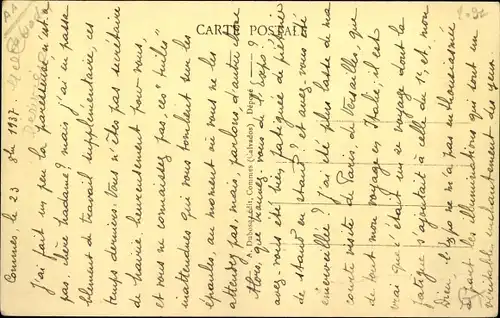 CARTE POSTALE
A. Dubosq, édit., Commes (Calvados). Déposé
Commes, le 23 1937.
J'ai fait un peu la paresseuse n'est-ce
pas, chère madame? mais j'ai eu passa-
blement de travail supplémentaire, ces
temps derniers. Vous n'êtes pas secrétaire
de mairie heureusement pour vous,
et vous ne connaissez pas, ces "tuiles"
inattendues qui vous tombent sur les
épaules, au moment où vous ne les
attendez pas, mais, parlons d'autre chose
Alors, que trouvez-vous de l'expo?
avez-vous été bien fatiguée de piétiner
de stand en stand? et avez-vous été
émerveillée? j'ai été plus lasse de ma
courte visite de Paris, de Versailles, que
de tout mon voyage en Italie, il est
vrai que c'était un voyage dont la
fatigue s'ajoutait à celle du 1er, et, mon
Dieu! l'expo ne m'a pas enthousiasmée
sauf les illuminations qui sont un
véritable enchantement des yeux.